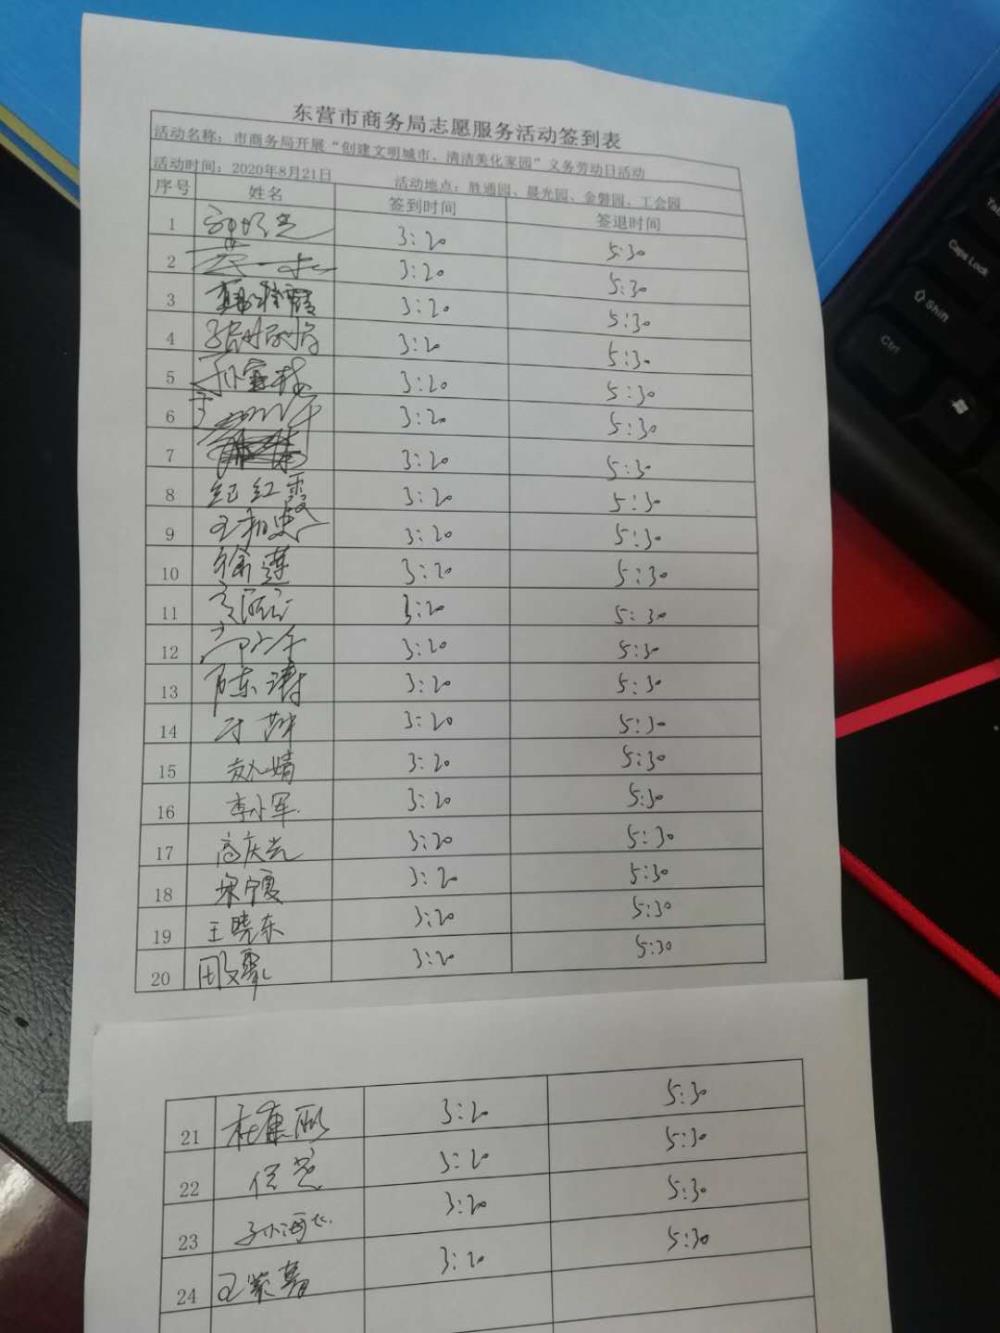 东营市商务局志愿服务活动签到表
活动名称：市商务局开展“创建文明城市、清洁美化家园”义务劳动日活动
活动时间：2020年8月21日 活动地点：胜通园、晨光园、金磐园、工会园
序号 姓名 签到时间 签退时间
1 3:20 5:30
2 3:20 5:30
3 3:20 5:30
4 3:20 5:30
5 3:20 5:30
6 3:20 5:30
7 3:20 5:30
8 纪红霞 3:20 5:30
9 3:20 5:30
10 徐莲 3:20 5:30
11 3:20 5:30
12 3:20 5:30
13 陈涛 3:20 5:30
14 于萍 3:20 5:30
15 婧 3:20 5:30
16 李小军 3:20 5:30
17 高庆光 3:20 5:30
18 宋宁霞 3:20 5:30
19 王晓东 3:20 5:30
20 3:20 5:30
21 杜康 3:20 5:30
22 任芝 3:20 5:30
23 孙海 3:20 5:30
24 王紫暮 3:20 5:30
Caps Lock
Shift
Ctrl